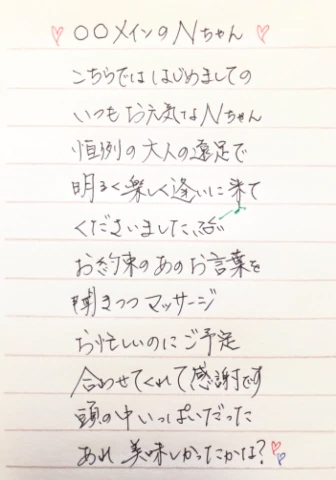 ♡ ○○メインのNちゃん ♡
こちらでははじめましての
いつもお元気なNちゃん
恒例の大人の遠足で
明るく楽しく逢いに来て
くださいました
お約束のあのお言葉を
聞きつつマッサージ
お忙しいのにご予定
合わせてくれて感謝です
頭の中いっぱいだった
あれ 美味しかったかな?♡♡